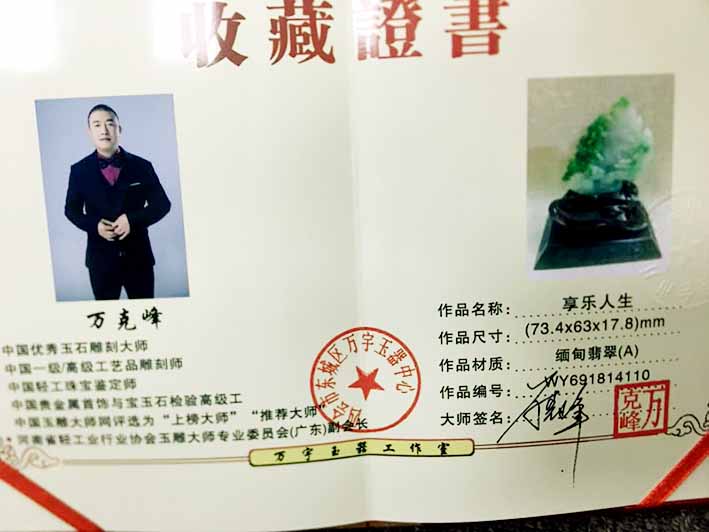 收藏證書
万克峰
中国优秀玉石雕刻大师
中国一级/高级工艺品雕刻师
中国轻工珠宝鉴定师
中国贵金属首饰与宝玉石检验高级工
中国玉雕大师网评选为“上榜大师”“推荐大师”
河南省轻工业行业协会玉雕大师专业委员会(广东)副会长
四会市东城区万字玉器中心
作品名称: 享乐人生
作品尺寸: (73.4x63x17.8)mm
作品材质: 缅甸翡翠(A)
作品编号: WY691814110
大师签名:
万克峰
万字玉器工作室